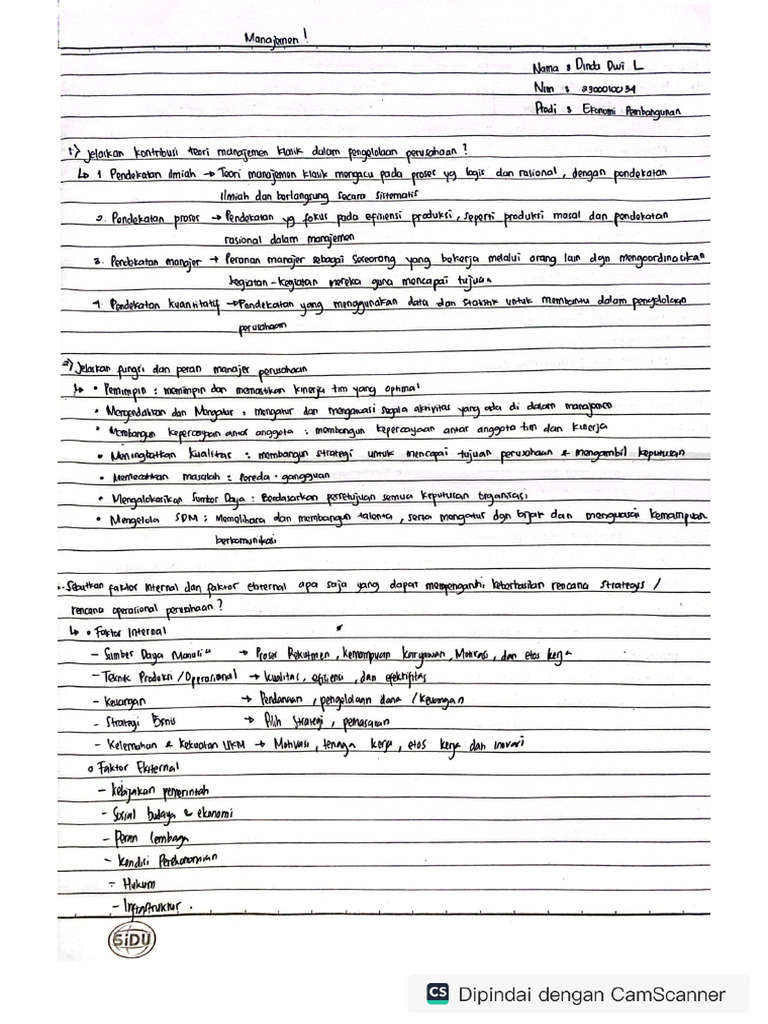 Manajemen !
Nama : Dinda Dwi L
Nim : 2300010034
Prodi : Ekonomi Pembangunan
1) Jelaskan kontribusi teori manajemen klasik dalam pengelolaan perusahaan ?
↳ 1. Pendekatan ilmiah → Teori manajemen klasik mengacu pada proses yg logis dan rasional, dengan pendekatan
ilmiah dan berlangsung secara sistematis
2. Pendekatan proses → Pendekatan yg fokus pada efisiensi produksi, seperti produksi masal dan pendekatan
rasional dalam manajemen
3. Pendekatan manajer → Peranan manajer sebagai seseorang yang bekerja melalui orang lain dgn mengoordinasikan
kegiatan-kegiatan mereka guna mencapai tujuan
4. Pendekatan kuantitatif → Pendekatan yang menggunakan data dan statistik untuk membantu dalam pengelolaan
perusahaan
2) Jelaskan fungsi dan peran manajer perusahaan
↳ • Pemimpin : memimpin dan memastikan kinerja tim yang optimal
• Mengendalikan dan Mengatur : mengatur dan mengawasi segala aktivitas yang ada di dalam manajemen
• Membangun kepercayaan antar anggota : membangun kepercayaan antar anggota tim dan kinerja
• Meningkatkan kualitas : membangun strategi untuk mencapai tujuan perusahaan & mengambil keputusan
• Memecahkan masalah : Pereda gangguan
• Mengalokasikan Sumber Daya : Berdasarkan persetujuan semua keputusan organisasi
• Mengelola SDM : Memelihara dan membangun talenta, serta mengatur dgn bijak dan menguasai kemampuan
berkomunikasi
Sebutkan faktor internal dan faktor eksternal apa saja yang dapat mempengaruhi keberhasilan rencana strategis /
rencana operasional perusahaan ?
↳ • Faktor Internal
- Sumber Daya Manusia → Proses Rekrutmen, kemampuan karyawan, Motivasi, dan etos kerja
- Teknik Produksi / Operasional → kualitas, efisiensi, dan efektifitas
- Keuangan → Pendanaan, pengelolaan dana / keuangan
- Strategi Bisnis → Pilih strategi, pemasaran
- Kelemahan & Kekuatan UKM → Motivasi, tenaga kerja, etos kerja dan inovasi
o Faktor Eksternal
- kebijakan pemerintah
- Sosial budaya & ekonomi
- Peran lembaga
- Kondisi Perekonomian
- Hukum
- Infrastruktur .
SiDU
CS Dipindai dengan CamScanner